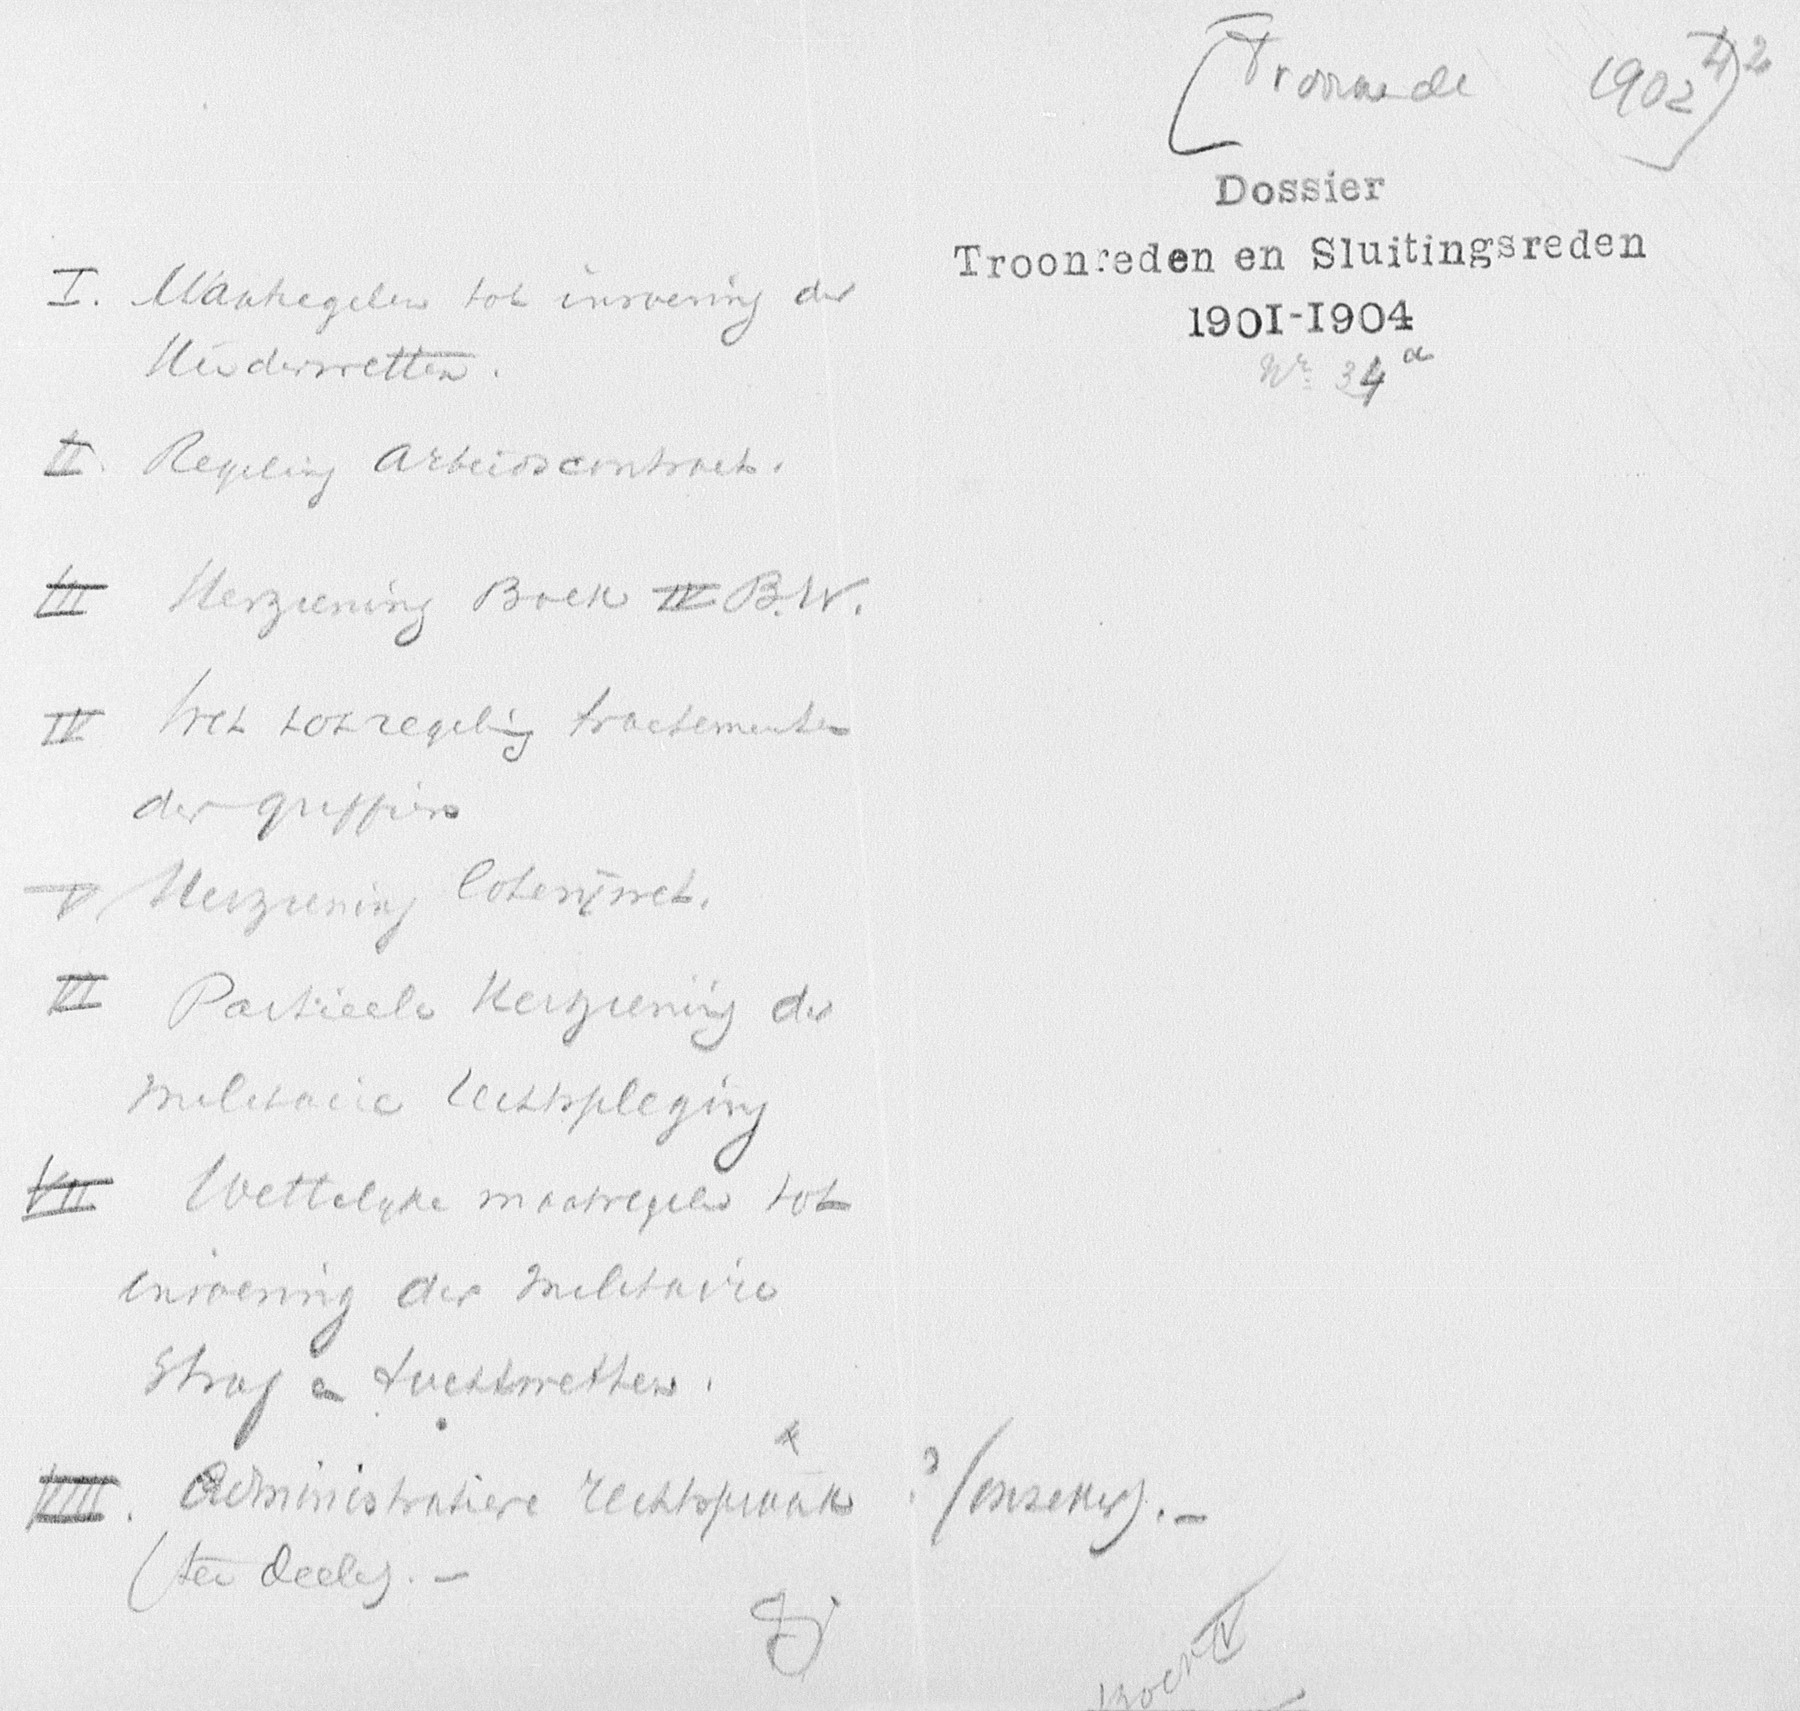 [Troonrede 1902]
42
Dossier
Troonreden en Sluitingsreden
1901-1904
Nr. 34a
I. Maatregelen tot invoering der
Kinderwetten.
II. Regeling Arbeidscontract.
III Herziening Boek IV B.W.
IV Wet tot regeling tractementen
der griffiers
V Herziening loterijwet.
VI Partieele Herziening der
militaire rechtspleging
VII Wettelijke maatregelen tot
invoering der militaire
Straf en tuchtwetten.
VIII. Administratieve rechtspraak ? (onzeker). –
(ten deele). –
Boek IV